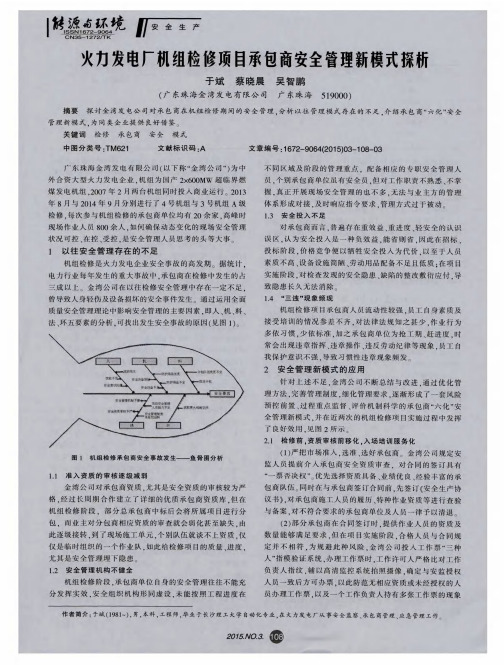 能源与环境
ISSN1672-9064
CN35-1272/TK
安全生产
火力发电厂机组检修项目承包商安全管理新模式探析
于斌 蔡晓晨 吴智鹏
(广东珠海金湾发电有限公司 广东珠海 519000)
摘要 探讨金湾发电公司对承包商在机组检修期间的安全管理,分析以往管理模式存在的不足,介绍承包商“六化”安全
管理新模式,为同类企业提供良好借鉴。
关键词 检修 承包商 安全 模式
中图分类号:TM621 文献标识码:A 文章编号:1672-9064(2015)03-108-03
广东珠海金湾发电有限公司(以下称“金湾公司”)为中
外合资大型火力发电企业,机组为国产2×600MW超临界燃
煤发电机组,2007年2月两台机组同时投入商业运行。2013
年8月与2014年9月分别进行了4号机组与3号机组A级
检修,每次参与机组检修的承包商单位均有20余家,高峰时
现场作业人员800余人,如何确保动态变化的现场安全管理
状况可控、在控、受控,是安全管理人员思考的头等大事。
1 以往安全管理存在的不足
机组检修是火力发电企业安全事故的高发期。据统计,
电力行业每年发生的重大事故中,承包商在检修中发生的占
三成以上。金湾公司在以往检修安全管理中存在一定不足,
曾导致人身轻伤及设备损坏的安全事件发生。通过运用全面
质量管理理论中影响安全管理的主要因素,即人、机、料、
法、环五要素的分析,可找出发生安全事故的原因(见图1)。
图1 机组检修承包商安全事故发生——鱼骨图分析
1.1 准入资质的审核逐级减弱
金湾公司对承包商资质,尤其是安全资质的审核较为严
格,经过长周期合作建立了详细的优质承包商资质库,但在
机组检修阶段,部分总承包商中标后会将所属项目进行分
包,而业主对分包商相应资质的审查就会弱化甚至缺失,由
此逐级接转,到了现场施工单元,个别队伍就谈不上资质,仅
仅是临时组织的一个作业队,如此给检修项目的质量、进度,
尤其是安全管理埋下隐患。
1.2 安全管理机构不健全
机组检修阶段,承包商单位自身的安全管理往往不能充
分发挥实效,安全组织机构形同虚设,未能按照工程进度在
不同区域及阶段的管理重点,配备相应的专职安全管理人
员,个别承包商单位虽有安全员,但对工作职责不熟悉、不掌
握,真正开展现场安全管理的也不多,无法与业主方的管理
体系形成对接,及时响应指令要求,管理方式过于被动。
1.3 安全投入不足
对承包商而言,普遍存在重效益、重进度,轻安全的认识
误区,认为安全投入是一种负效益,能省则省,因此在招标、
投标阶段,价格竞争便以牺牲安全投入为代价,以至于人员
素质不高、设备设施简陋、劳动用品配备不足且低质;在项目
实施阶段,对检查发现的安全隐患、缺陷的整改敷衍应付,导
致隐患长久无法消除。
1.4 “三违”现象频现
机组检修项目承包商人员流动性较强,员工自身素质及
接受培训的情况参差不齐,对法律法规知之甚少,作业行为
多依习惯,少依标准,加之承包商单位为抢工期、赶进度,时
常会出现违章指挥、违章操作、违反劳动纪律等现象,员工自
我保护意识不强,导致习惯性违章现象频发。
2 安全管理新模式的应用
针对上述不足,金湾公司不断总结与改进,通过优化管
理方法,完善管理制度,细化管理要求,逐渐形成了一套风险
预控前置、过程重点监督、评价机制科学的承包商“六化”安
全管理新模式,并在近两次的机组检修项目实施过程中发挥
了良好效用,见图2所示。
2.1 检修前,资质审核前移化,入场培训服务化
(1)严把市场准入,选准、选好承包商。金湾公司规定安
监人员提前介入承包商安全资质审查,对合同的签订具有
“一票否决权”,优先选择资质具备、业绩优良、经验丰富的承
包商队伍,同时在与承包商签订合同前,先签订《安全生产协
议书》,对承包商施工人员的履历、特种作业资质等进行查验
与备案,对不符合要求的承包商单位及人员一律予以清退。
(2)部分承包商在合同签订时,提供作业人员的资质及
数量能够满足要求,但在项目实施阶段,合格人员与合同规
定并不相符,为规避此种风险,金湾公司投入工作票“三种
人”指模验证系统,办理工作票时,工作许可人严格比对工作
负责人指纹,辅以高清监控系统拍照摄像,确定与安监授权
人员一致后方可办票,以此防范无相应资质或未经授权的人
员办理工作票,以及一个工作负责人持有多张工作票的现象
作者简介:于斌(1981~),男,本科,工程师,毕业于长沙理工大学自动化专业,在火力发电厂从事安全监察、承包商管理、应急管理工作。
2015.NO.3. 108